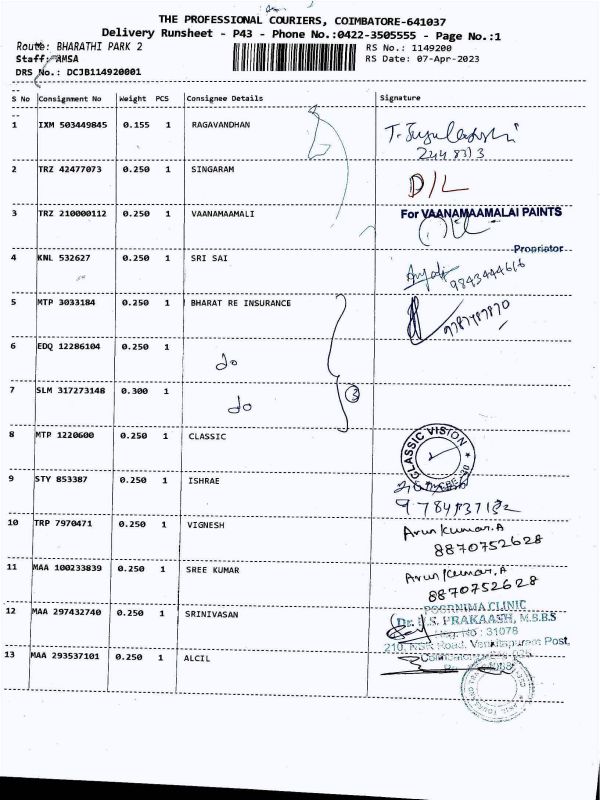 THE PROFESSIONAL COURIERS, COIMBATORE-641037
Delivery Runsheet - P43 - Phone No.:0422-3505555 - Page No.:1
Route: BHARATHI PARK 2 RS No.: 1149200
Staff: AMSA RS Date: 07-Apr-2023
DRS No.: DCJB114920001
S No Consignment No Weight PCS Consignee Details Signature
1 IXM 503449845 0.155 1 RAGAVANDHAN
2448313
2 TRZ 42477073 0.250 1 SINGARAM D/L
3 TRZ 210000112 0.250 1 VAANAMAAMALI For VAANAMAAMALAI PAINTS
Proprietor
4 KNL 532627 0.250 1 SRI SAI Anjali
9843444616
5 MTP 3033184 0.250 1 BHARAT RE INSURANCE
9787487870
6 EDQ 12286104 0.250 1 do
7 SLM 317273148 0.300 1 do 3
8 MTP 1220600 0.250 1 CLASSIC CLASSIC VISION
9 STY 853387 0.250 1 ISHRAE
10 TRP 7970471 0.250 1 VIGNESH Arun Kumar.A
8870752628
11 MAA 100233839 0.250 1 SREE KUMAR Arun Kumar.A
8870752628
12 MAA 297432740 0.250 1 SRINIVASAN POORNIMA CLINIC
PRAKAASH, M.B.B.S
Reg. No : 31078
210, NSR Road, Venkitapuram Post,
13 MAA 293537101 0.250 1 ALCIL